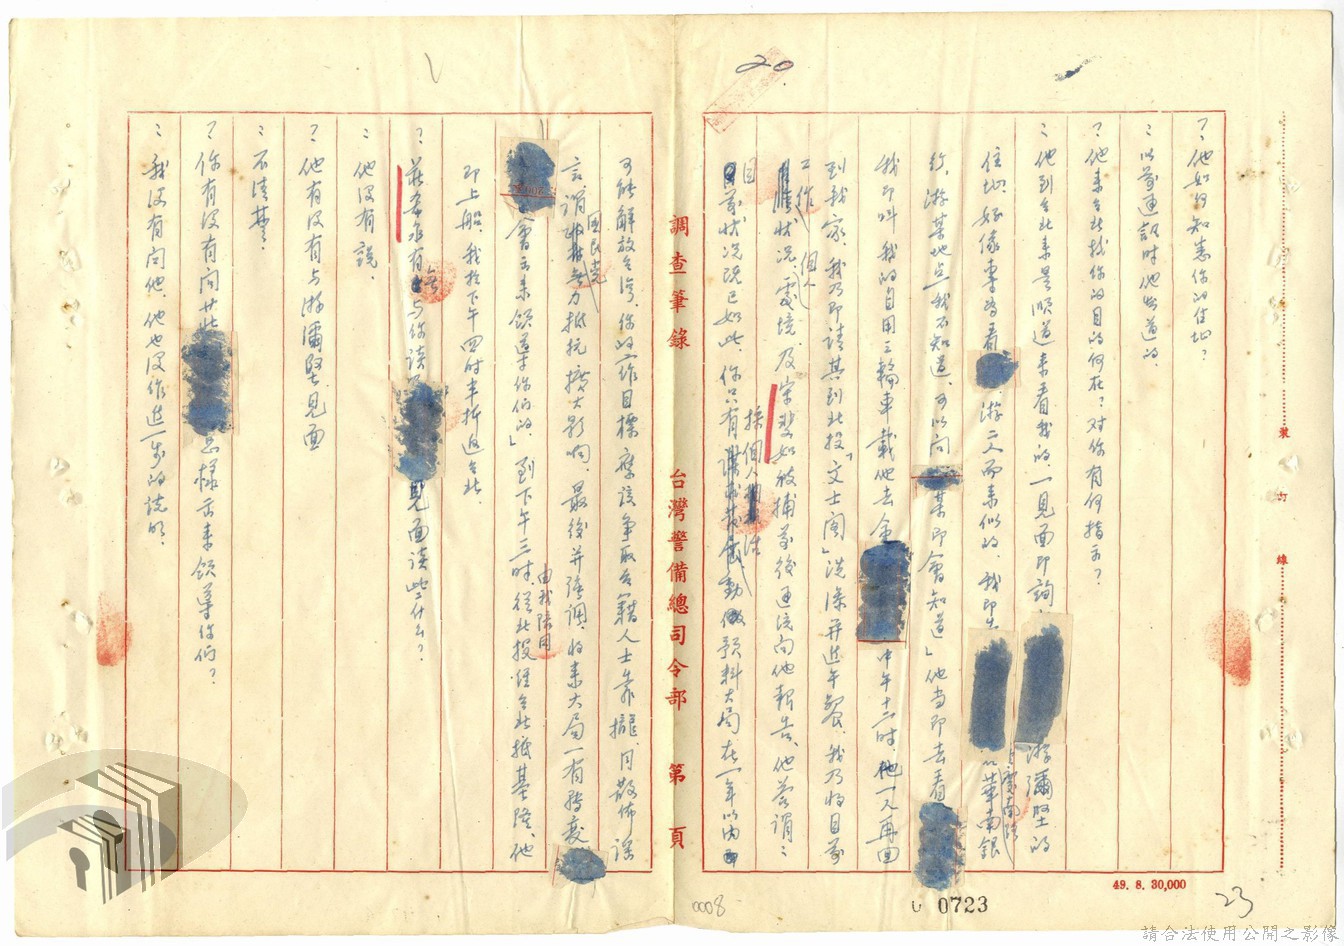 20
?他如何知悉你的住址?
:以前通訊時他知道的
?他來台北找你的目的何在?对你有何指示?
:他到台北來是順道來看我的,一見面即詢 游彌堅的
住址,好像專為看 游二人而來似的,我即告 以華南銀
行,游某地点我不知道,可以问 某即會知道」他当即去看
我即叫我的自用三輪車載他去会 中午十二时他一人再回
到我家,我乃即請其到北投「文士閣」洗澡并進午餐,我乃將目前
工作 個人
状况、處境、及 如被捕前後通统向他報告,他答謂:
目前状况既已如此,你只有 採個人 活動 預料大局在一年以内
可能解放台灣,你的工作目標應該争取台籍人士靠攏,同散佈謠
言謂國民党無力抵抗擴大影响,最後并強調,将来大局一有轉變
會出来領導你们的,」到下午三时 由我陪同 從北投經台北抵基隆,他
即上船,我於下午四时半折返台北,
? 有 与你談 見面談些什么?
:他没有説,
?他有没有与游彌堅見面
:不清楚,
?你有没有问 怎樣出来領導你们?
:我没有问他,他也没作進一步的説明,
調查筆錄 台灣警備總司令部 第 頁
裝訂線
49. 8. 30,000
0008
0723
23
請合法使用公開之影像